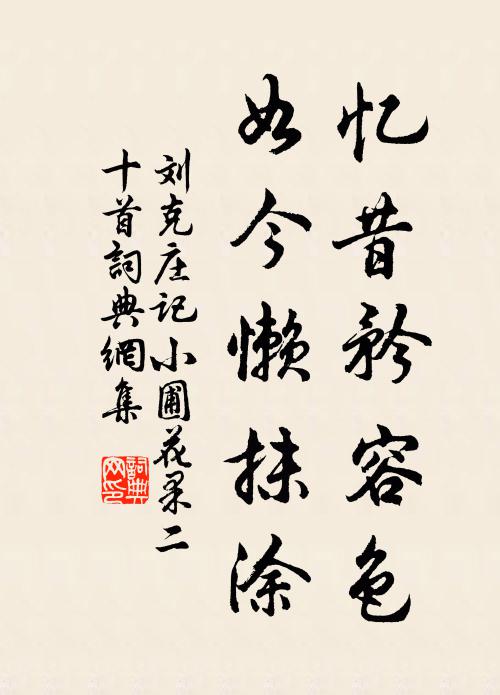 忆昔矜容色
如今懒抹涂
刘克庄记小圃花果二
十首詞典網集
詞典
网印